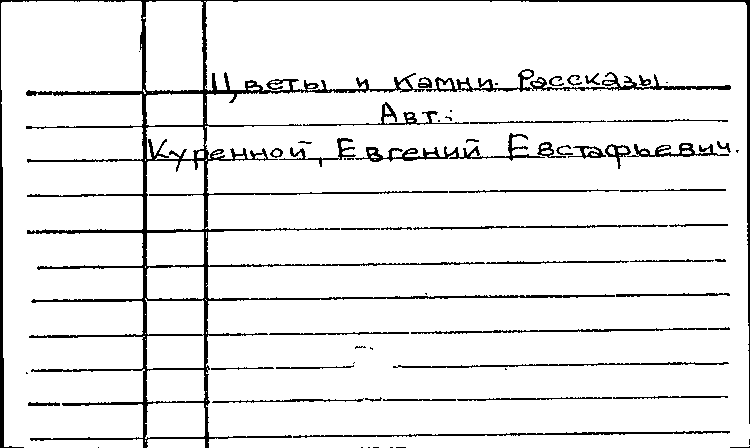 Цветы и камни. Рассказы.
Авт.:
Куренной, Евгений Евстафьевич.